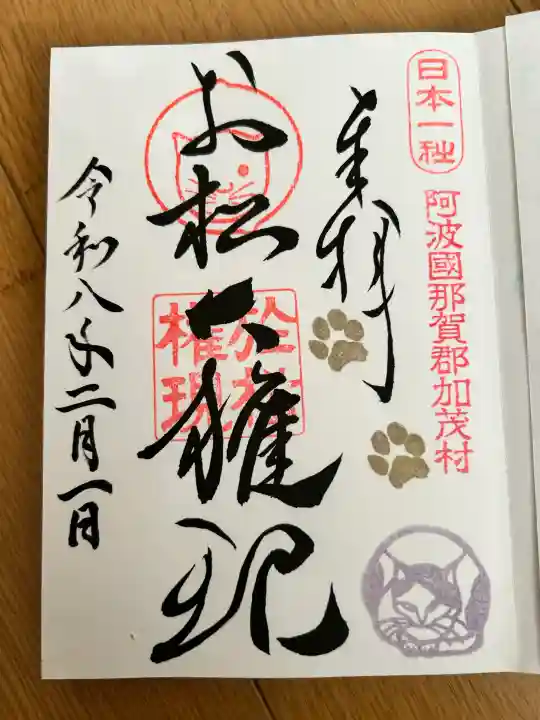 日本一社
阿波國那賀郡加茂村
奉拝
お松大権現
於松
権現
令和八年二月一日